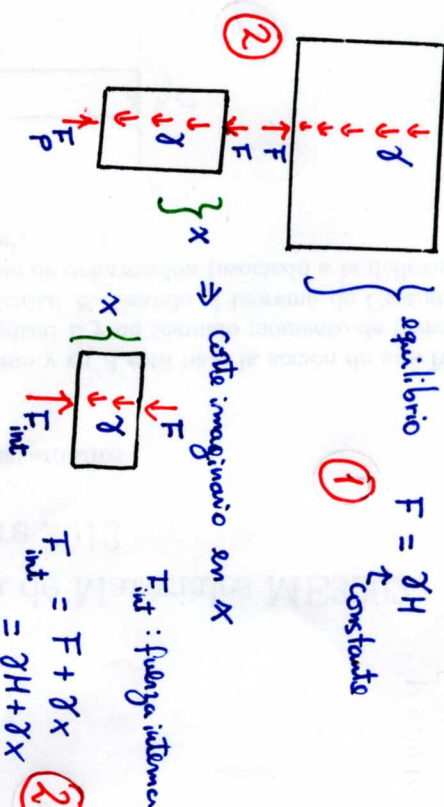 γ
F
equilibrio F = γH
①
↑
constante
②
F
γ
F_P
x
⇒ corte imaginario en x
x
F
γ
F_int
F_int : fuerza interna
F_int = F + γx
= γH + γx
②